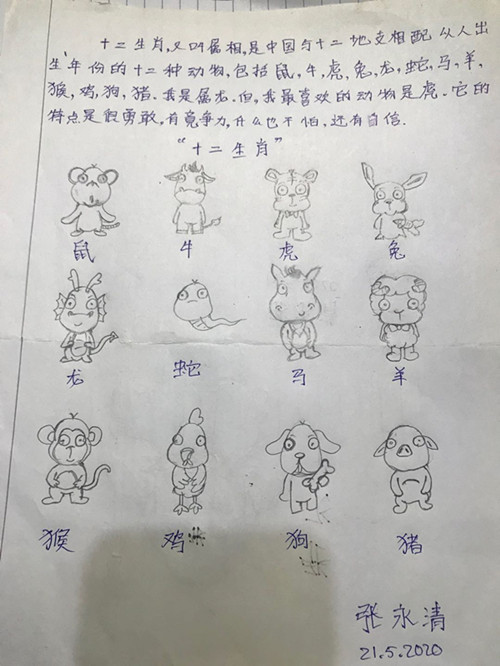 十二生肖,又叫属相,是中国与十二地支相配从人出
生年份的十二种动物,包括鼠,牛,虎,兔,龙,蛇,马,羊,
猴,鸡,狗,猪.我是属龙.但,我最喜欢的动物是虎.它的
特点是很勇敢,有竞争力,什么也不怕,还有自信.
"十二生肖"
鼠 牛 虎 兔
龙 蛇 马 羊
猴 鸡 狗 猪
张永清
21.5.2020